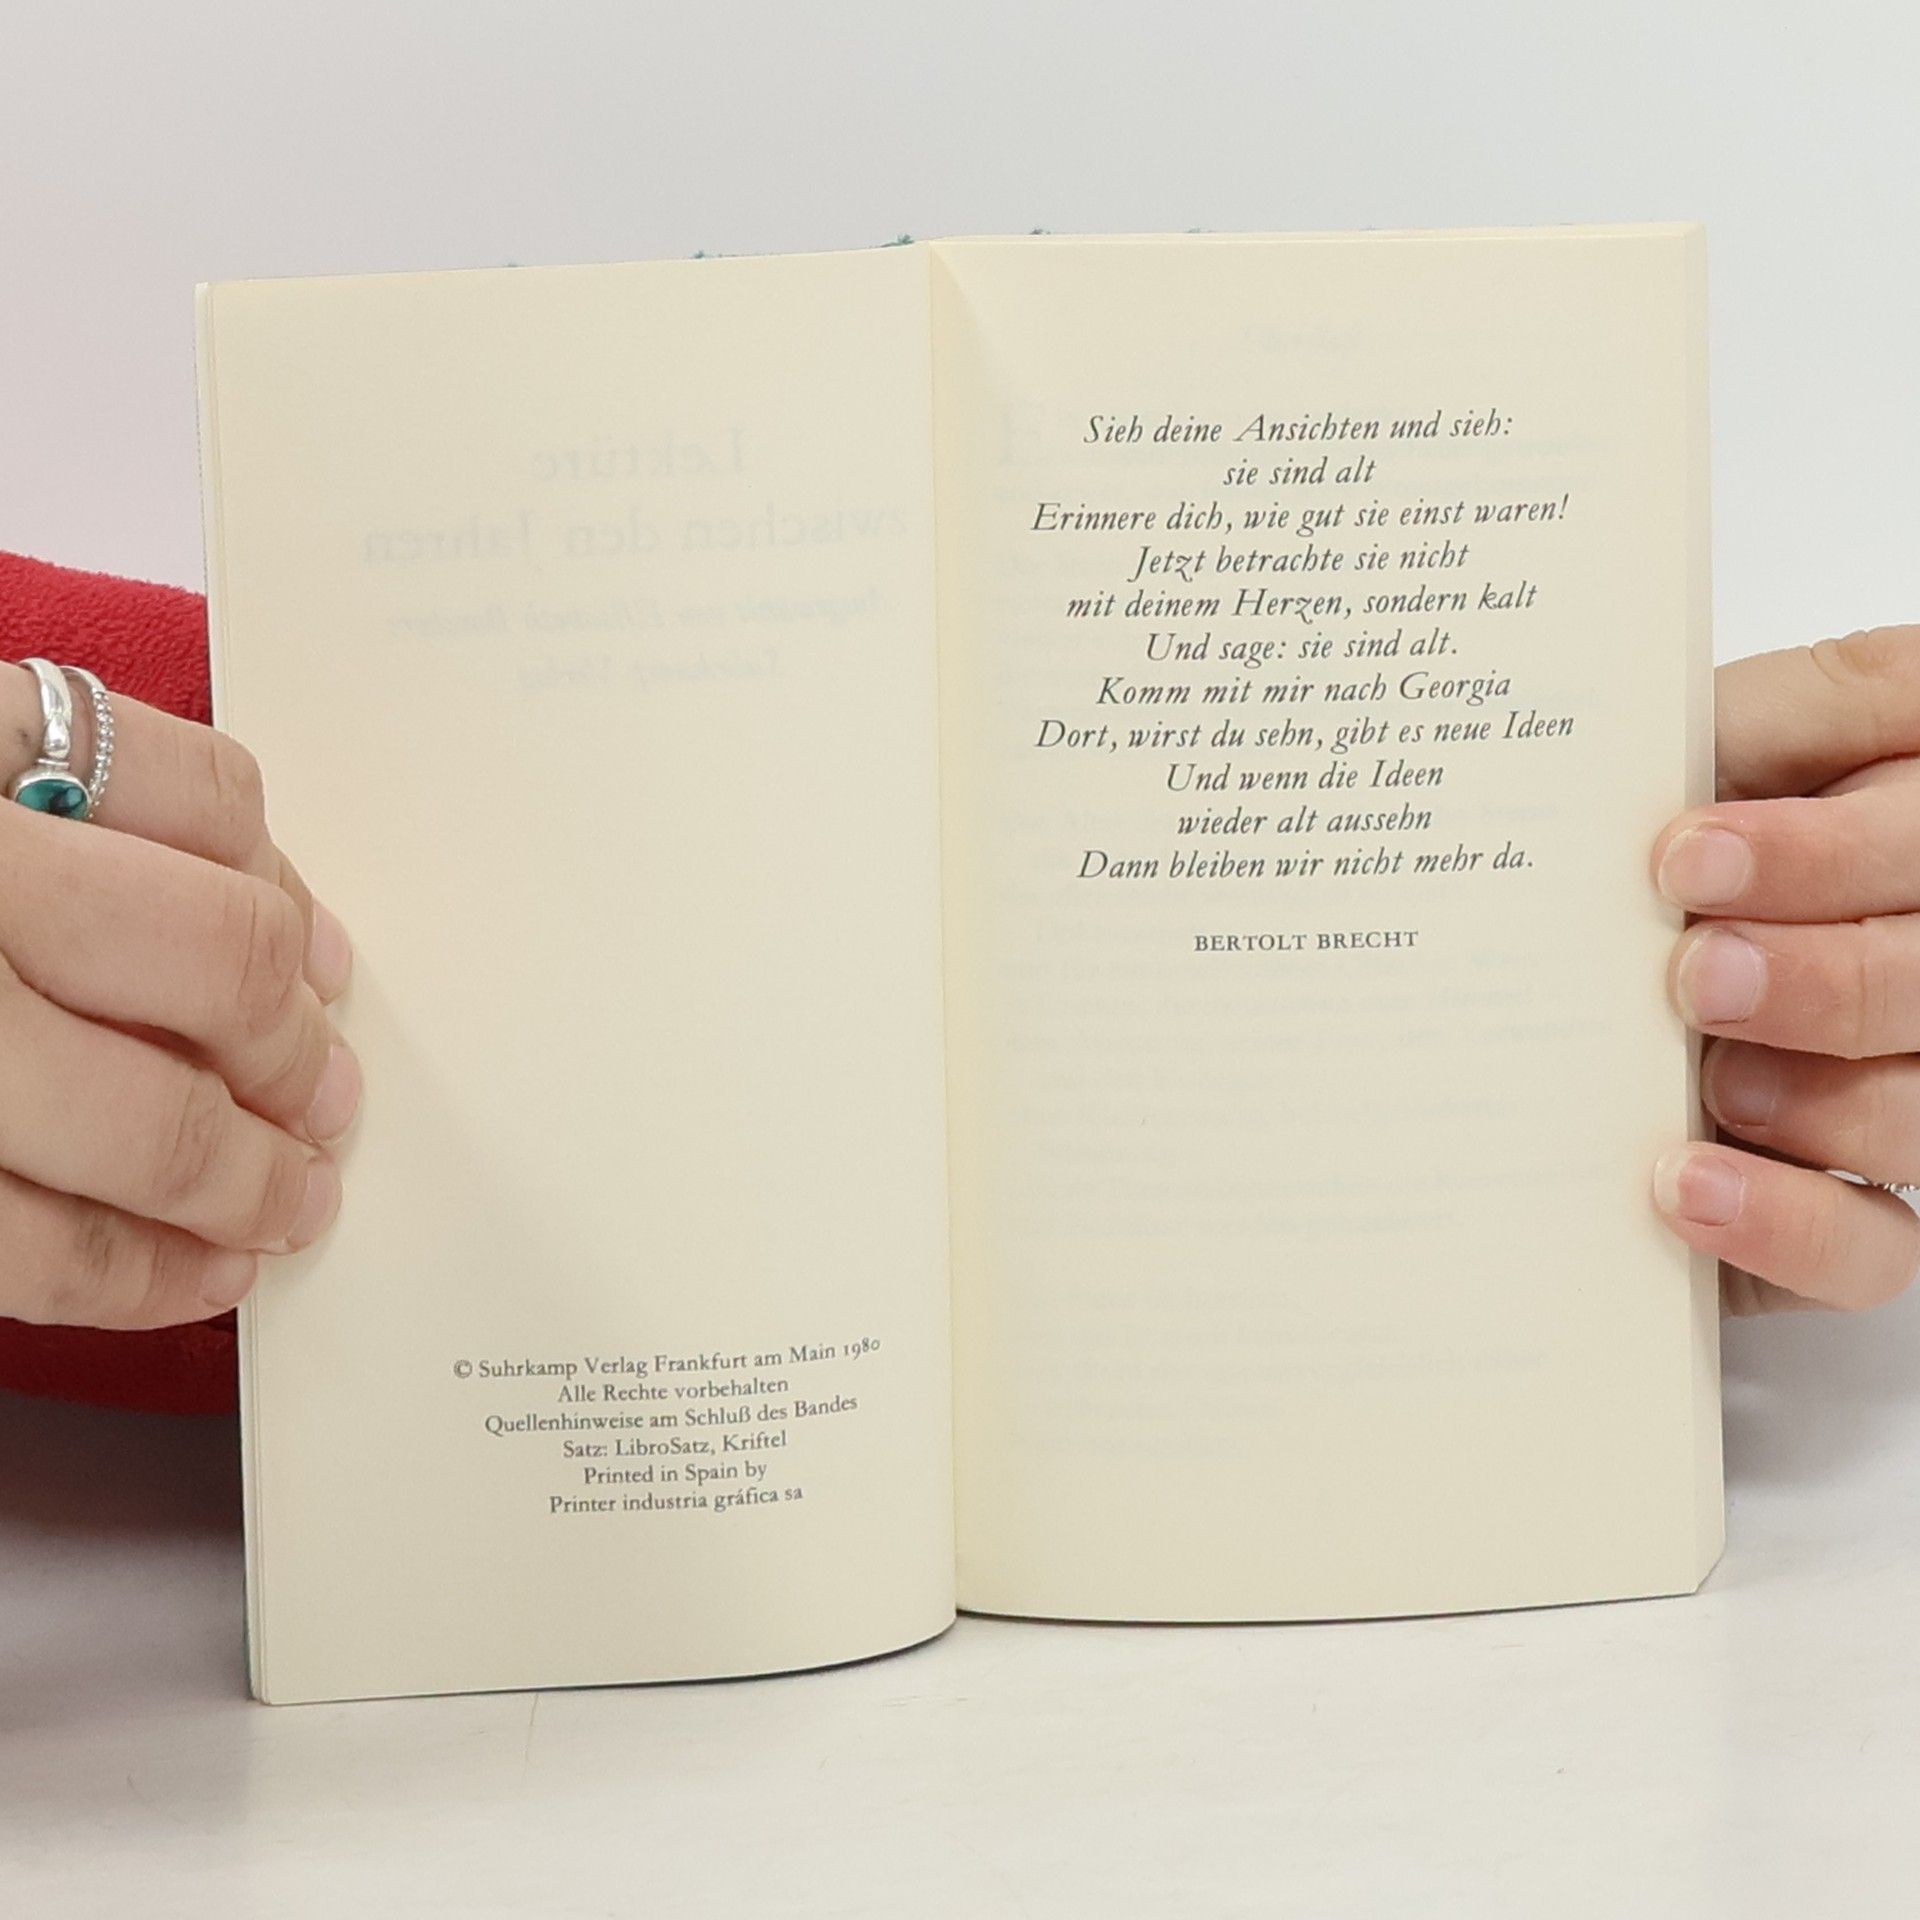 © Suhrkamp Verlag Frankfurt am Main 1980
Alle Rechte vorbehalten
Quellenhinweise am Schluß des Bandes
Satz: LibroSatz, Kriftel
Printed in Spain by
Printer industria gráfica sa
Sieh deine Ansichten und sieh:
sie sind alt
Erinnere dich, wie gut sie einst waren!
Jetzt betrachte sie nicht
mit deinem Herzen, sondern kalt
Und sage: sie sind alt.
Komm mit mir nach Georgia
Dort, wirst du sehn, gibt es neue Ideen
Und wenn die Ideen
wieder alt aussehn
Dann bleiben wir nicht mehr da.
BERTOLT BRECHT